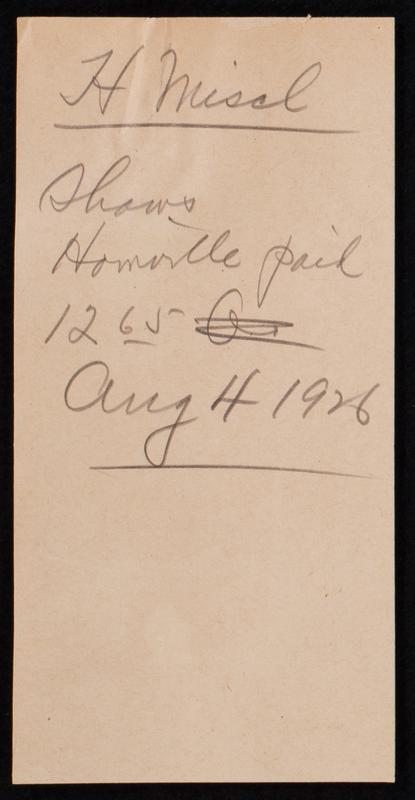 H Miscl
Shows
Homville paid
12 65
Aug 4 1926